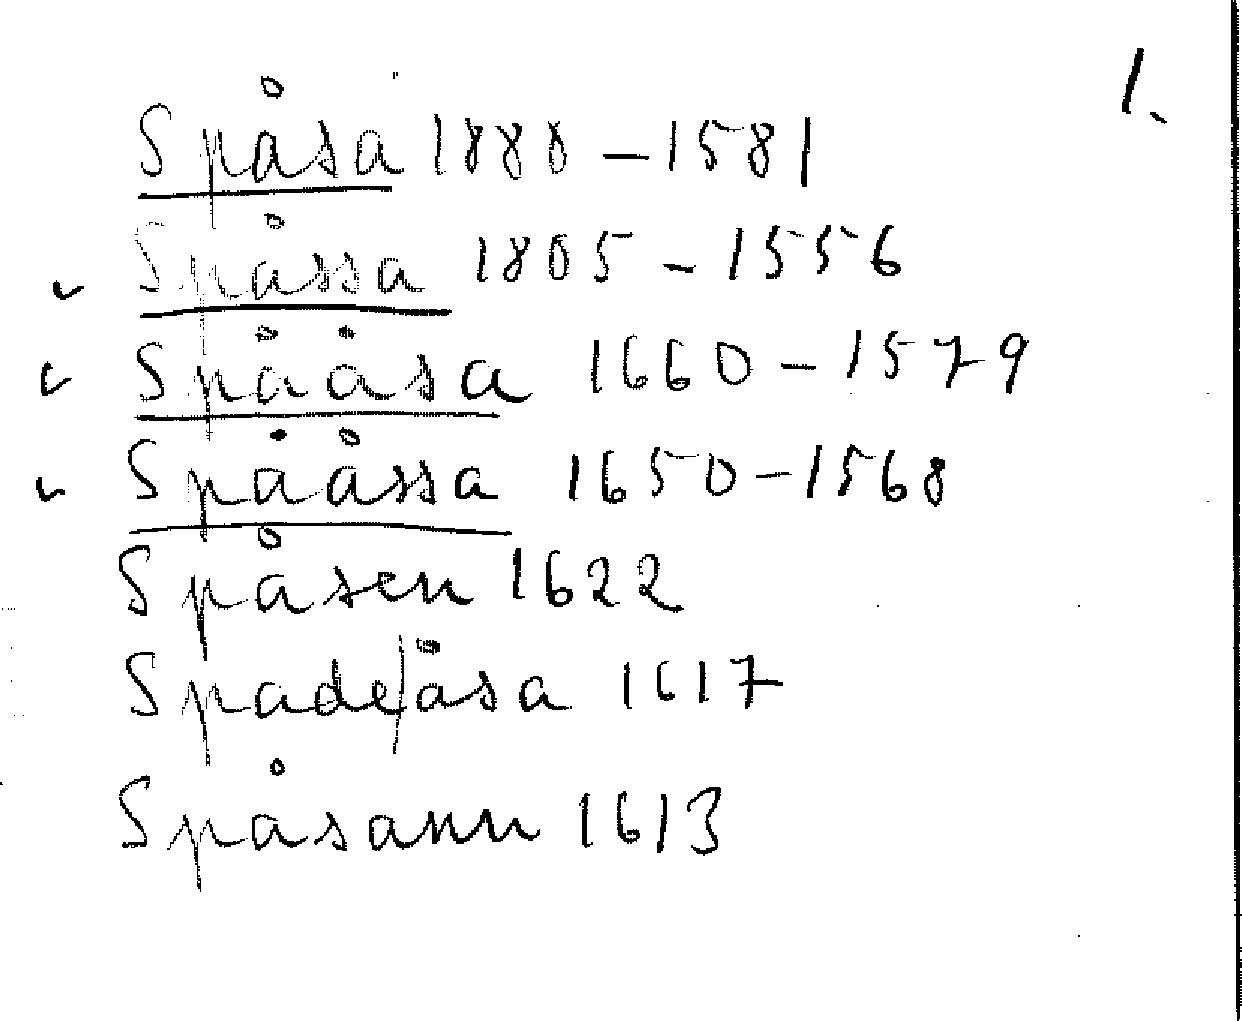 1.
Spåsa 1880-1581
Spåssa 1805-1556
Spååsa 1660-1579
Spååssa 1650-1568
Spåsen 1622
Spade|åsa 1617
Spåsann 1613